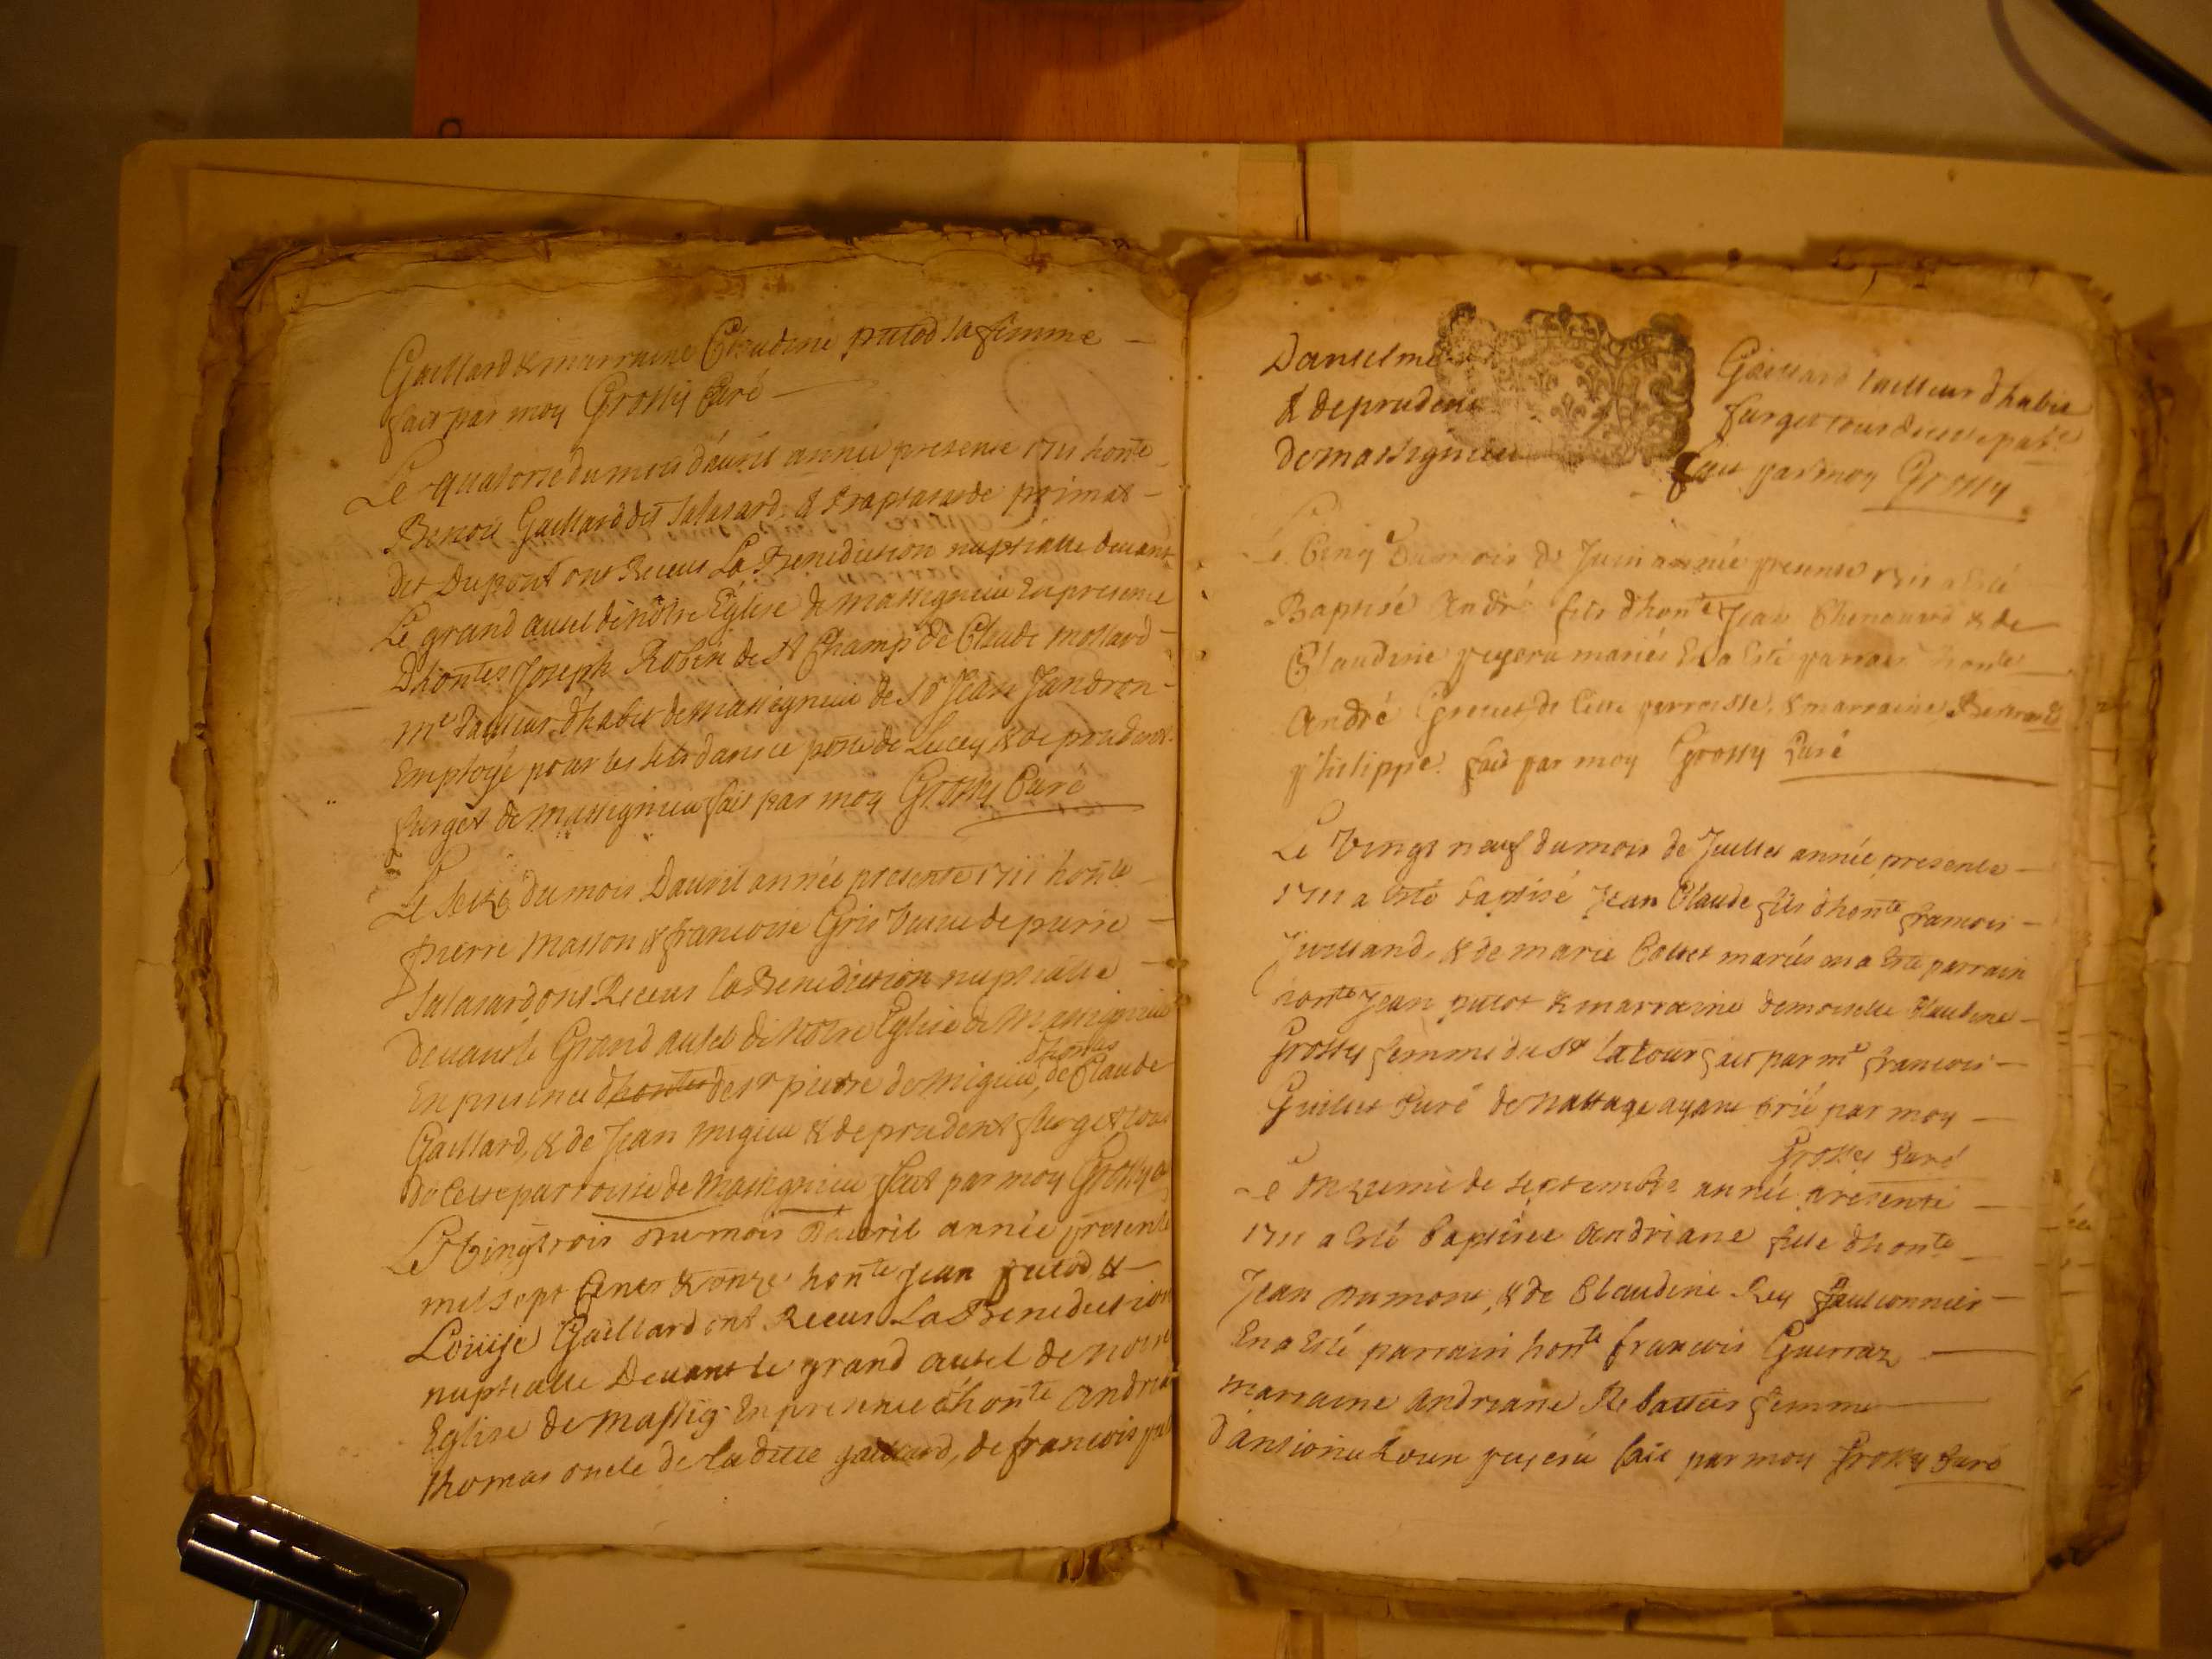 Gaillard & marraine Claudine putod sa femme
fait par moy Grossy Curé
Le quatorse du mois d'auril année presente 1711 honte
Benoit Gaillard dit Salasard & primat
dit Dupont ont Receus La Benediction nuptialle deuant
Le grand autel de notre Eglise de massignieu En presence
D'hontes Joseph Robin de St Champ de Claude mollard
me tailleur d'habit de massignieu de Sr Jean Jandron
Employé pour les sels dans ce poste de Lucey & de prudent
furget de massignieu fait par moy Grossy Curé
Le seize du mois Dauril année presente 1711 honte
pierre masson & francoise Gris veuue de pierre
Salasard ont Receus la Benediction nuptialle
Deuant le Grand autel de notre Eglise de Massignieu
En presence d'hontes de Sr pierre de migieu, d'hontes de Claude
Gaillard, & de Jean migieu & de prudent furget tous
de Cette parroisse de Massignieu fait par moy Grossy
Le Vingt trois du mois d'auril année presente
mil sept Cents & onze honte Jean putod &
Louise Gaillard ont Receus La Benediction
nuptialle Deuant le grand autel de notre
Eglise de Massig. En presence d'honte andré
thomas oncle de laditte gaillard, de francois
Danselme Gaillard tailleur d'habit
& de prudent furget tous de cette parse
de massignieu fait par moy Grossy
Le Cinq du mois de Juin année presente 1711 a Esté
Baptisé André fils d'honte Jean Chenaurd & de
Claudine peysru mariés En a Esté parrain honte
André de Cette parroisse, & marraine Bernarde
philippe. fait par moy Grossy Curé
Le Vingt neuf du mois de Juillet année presente
1711 a Esté baptisé Jean Claude fils d'honte francois
Juilland, & de marie Collet mariés en a Esté parrain
honte Jean putot & marraine demoiselle Claudine
Grossy femme du Sr latour fait par me francois
Guillet Curé de Nattage ayant Prié par moy
Grossy Curé
Le Onzieme de septembre année presente
1711 a Esté baptisée Andriane fille d'honte
Jean Dumont, & de Claudine Rey faulconnier
En a Esté parrain honte francois Guerraz
marraine Andriane Rebattet femme
d'antoine peysru fait par moy Grossy Curé